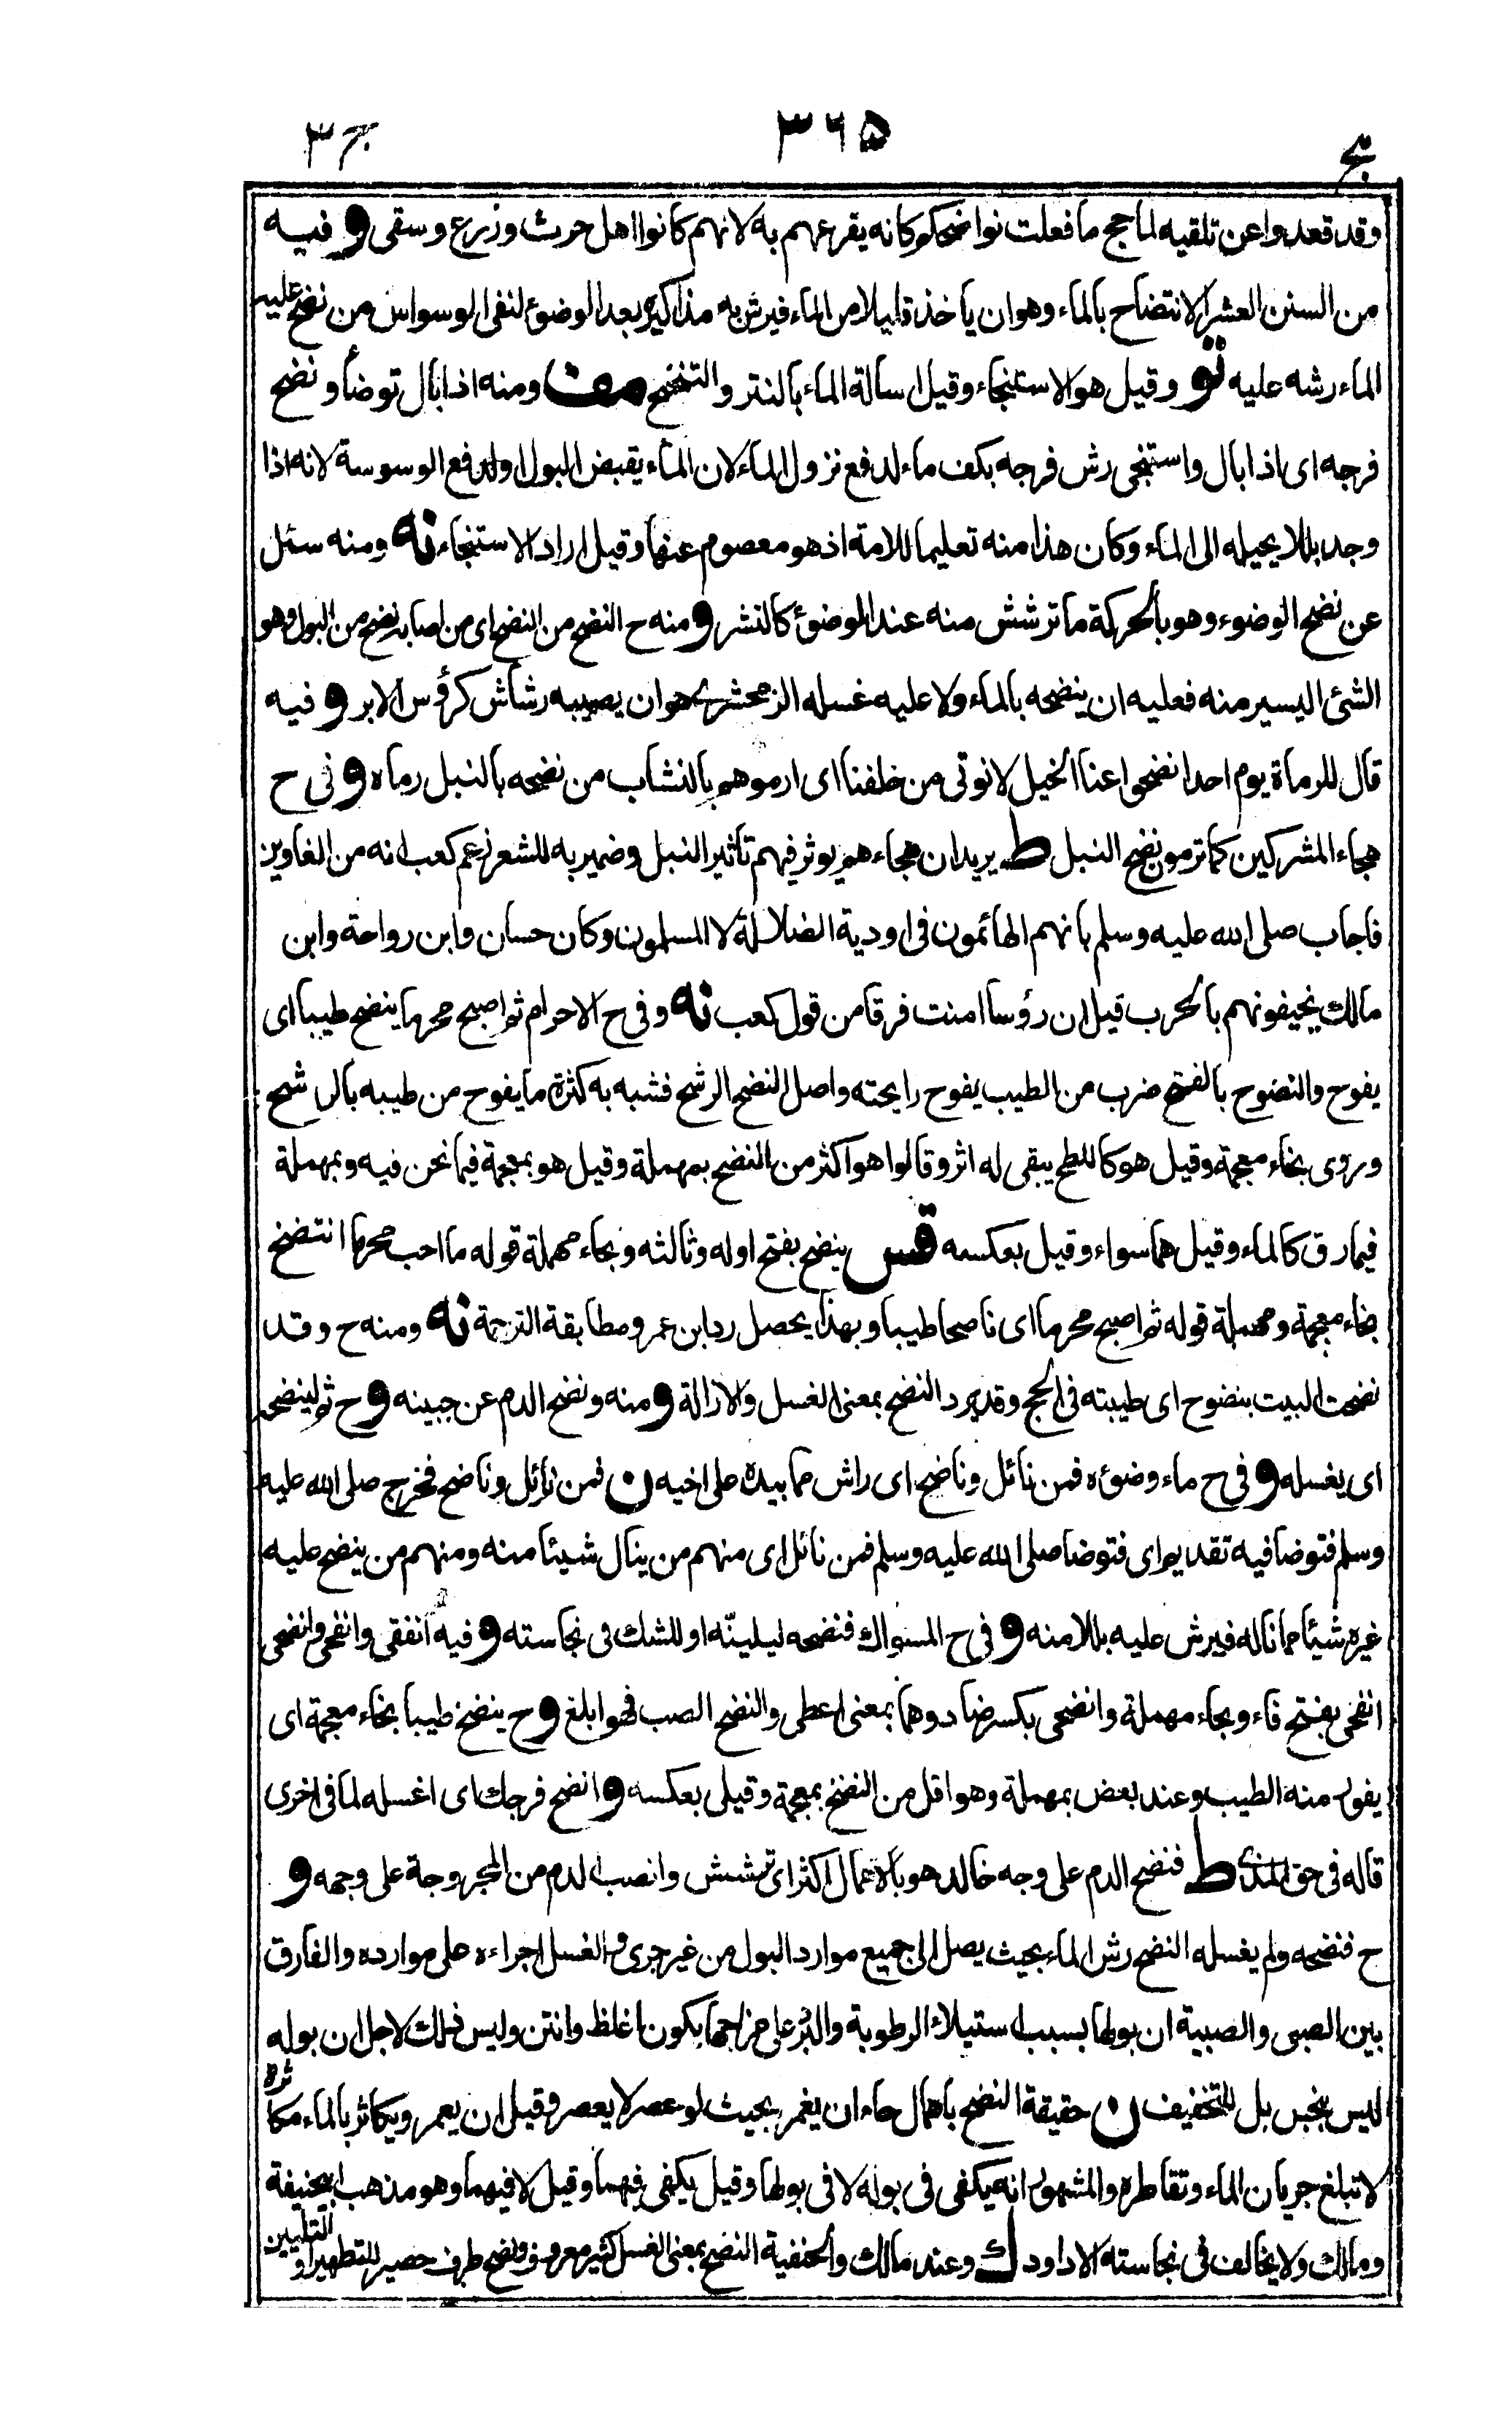 نج ٣٦٥ ج٣
وقد قعدوا عن تلقيه لما حج ما فعلت نواضحكم كانه يقرعهم به لانهم كانوا اهل حرث وزرع وسقى و فيه
من السنن العشر الانتضاح بالماء وهو ان ياخذ قليلا من الماء فيرش به مذاكيره بعد الوضوء لنفى الوسواس من نضح عليه
الماء رشه عليه نو وقيل هو الاستنجاء وقيل اسالة الماء بالنتر والتنحنح مف ومنه اذا بال توضأ و نضح
فرجه اى اذا بال واستنجى رش فرجه بكف ماء لدفع نزول الماء لان الماء يقبض البول او لدفع الوسوسة لانه اذا
وجد بللا يحيله الى الماء وكان هذا منه تعليما للامة اذ هو معصوم عنها وقيل اراد الاستنجاء نه ومنه سئل
عن نضح الوضوء وهو بالحركة ما ترشش منه عند الوضوء كالنشر و منه ح النضح من النضح اى من اصابه نضح من البول وهو
الشئ اليسير منه فعليه ان ينضحه بالماء ولا عليه غسله الزمخشرى هو ان يصيبه رشاش كرؤس الابر و فيه
قال للرماة يوم احد انضحوا عنا الخيل لا نوتى من خلفنا اى ارموهم بالنشاب من نضحه بالنبل رماه و فى ح
هجاء المشركين كما ترمون نضح النبل ط يريد ان هجاءهم يوثر فيهم تأثير النبل وضمير به للشعر زعم كعب انه من الغاوين
فاجاب صلى الله عليه وسلم بانهم الهائمون فى اودية الضلالة لا المسلمون وكان حسان وابن رواحة وابن
مالك يخيفونهم بالحرب قيل ان رؤسا امنت فرقا من قول كعب نه وفى ح الاحرام ثم اصبح محرما ينضح طيبا اى
يفوح والنضوح بالفتح ضرب من الطيب يفوح رايحته واصل النضح الرشح فشبه به كثرة ما يفوح من طيبه بالرشح
وروى بخاء معجمة وقيل هو كاللطخ يبقى له اثر وقالوا هو اكثر من النضح بمهملة وقيل هو بمعجمة فيما ثخن فيه وبمهملة
فيما رق كالماء وقيل هما سواء وقيل بعكسه قس ينضح بفتح اوله وثالثه وبحاء مهملة قوله ما احب محرما انتضخ
بخاء معجمة ومهملة قوله ثم اصبح محرما اى ناضحا طيبا وبهذا يحصل رد ابن عمر ومطابقة الترجمة نه ومنه ح وقد
نضحت البيت بنضوح اى طيبته فى الحج وقد يرد النضح بمعنى الغسل والازالة و منه ونضح الدم عن جبينه و ح ثم لينضحه
اى يغسله و فى ح ماء وضوءه فمن نائل وناضح اى راش مما بيده على اخيه ن فمن نائل وناضح فخرج صلى الله عليه
وسلم فتوضا فيه تقديم اى فتوضا صلى الله عليه وسلم فمن نائل اى منهم من ينال شيئا منه ومنهم من ينضح عليه
غيره شيئا مما ناله فيرش عليه بللا منه و فى ح المسواك فنضحه ليلينّه او للشك فى نجاسته و فيه انفقى وانفحى وانضحى
انفحى بفتح فاء وبحاء مهملة وانضحى بكسر ضاد وهما بمعنى اعطى والنضح الصب فهو ابلغ و ح ينضخ طيبا بخاء معجمة اى
يفور منه الطيب وعند بعض بمهملة وهو اقل من النضخ بمعجمة وقيل بعكسه و انضح فرجك اى اغسله لما فى اخرى
قاله فى حق المذى ط فنضح الدم على وجه خالد هو بالاهمال اكثر اى ترشش وانصب الدم من المجروحة على وجهه و
ح فنضحه ولم يغسله النضح رش الماء بحيث يصل الى جميع موارد البول من غير جرى والغسل اجراءه على موارده والفارق
بين الصبى والصبية ان بولها بسبب استيلاء الرطوبة والبرد على مزاجها يكون اغلظ وانتن وليس ذلك لاجل ان بوله
ليس بنجس بل للتخفيف ن حقيقة النضح باهمال حاء ان يغمر بحيث لو عصر لا يعصر وقيل ان يغمر ويكاثر بالماء مكاثرة
لا تبلغ جريان الماء وتقاطره والمشهور انه يكفى فى بوله لا فى بولها وقيل يكفى فيهما وقيل لا فيهما وهو مذهب ابيحنيفة
ومالك ولا يخالف فى نجاسته الا داود ك وعند مالك والحنفية النضح بمعنى الغسل كثير معروف ونضح طرف حصير للتطهير او التليين